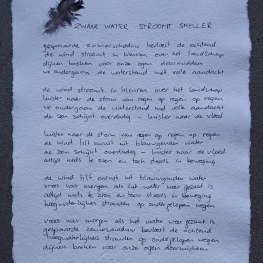 ZWAAR WATER STROOMT SNELLER
gespaarde zomerschaduw bedaart de ochtend
de wind stroomt in kleuren over het landschap
dijken breken voor onze ogen doormidden
we ondergaan de waterstand met volle aandacht
de wind stroomt in kleuren over het landschap
luister naar de storm van regen op regen op regen
we ondergaan de waterstand met volle aandacht
de zon schijnt overdadig – luister naar de vloed
luister naar de storm van regen op regen op regen
de wind tilt onrust uit blauwgouden water
de zon schijnt overdadig – luister naar de vloed
altijd iets te zien en toch steeds in beweging
de wind tilt onrust uit blauwgouden water
vrees voor morgen als het water weer gezakt is
altijd iets te zien en toch steeds in beweging
hoogwaterlijkes stranden op ondergelopen wegen
vrees voor morgen als het water weer gezakt is
gespaarde zomerschaduw bedaart de ochtend
hoogwaterlijkes stranden op ondergelopen wegen
dijken breken voor onze ogen doormidden